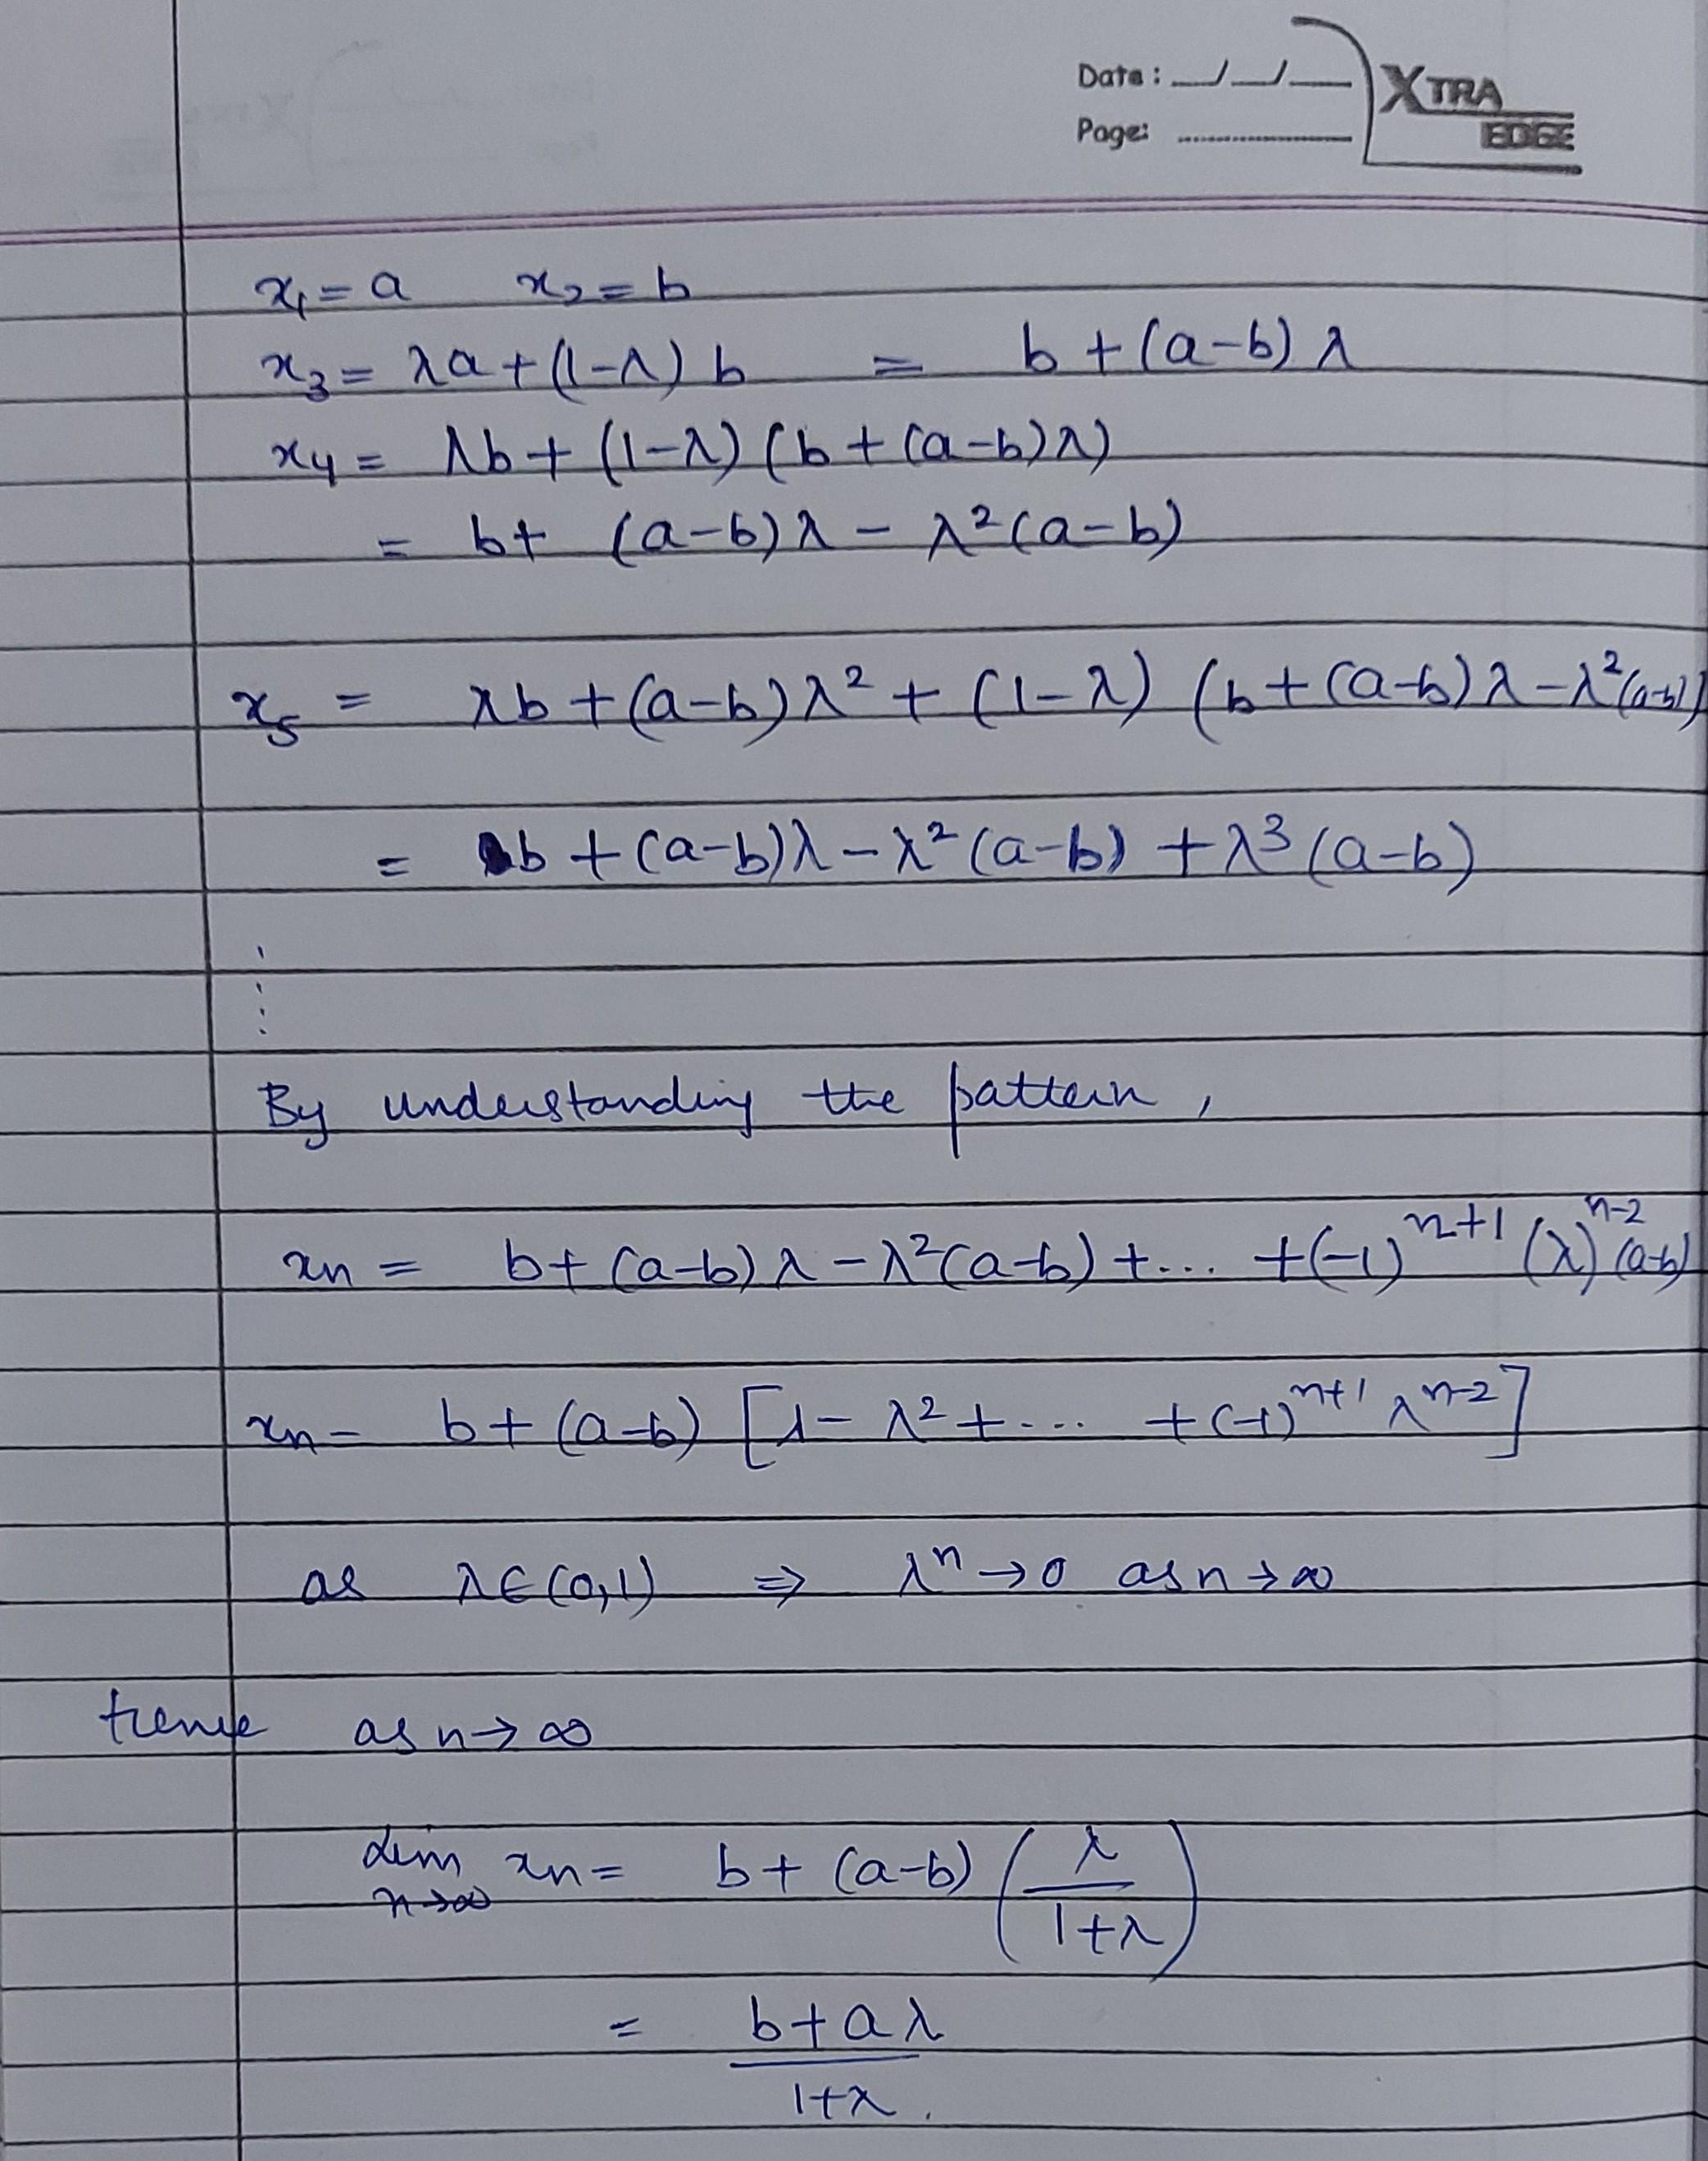 Date: __/__/__
Page: ..........
XTRA
EDGE
x₁ = a x₂ = b
x₃ = λa + (1-λ) b = b + (a-b) λ
x₄ = λb + (1-λ) (b + (a-b)λ)
= b+ (a-b) λ - λ²(a-b)
x₅ = λb + (a-b) λ² + (1-λ) (b + (a-b) λ - λ²(a-b))
= b + (a-b)λ - λ² (a-b) + λ³ (a-b)
⋮
By understanding the pattern,
xn = b + (a-b) λ - λ²(a-b) + ... + (-1)ⁿ⁺¹ (λ)ⁿ⁻² (a-b)
xn = b + (a-b) [λ - λ² + ... + (-1)ⁿ⁺¹ λⁿ⁻²]
as λ∈(0,1) ⇒ λⁿ → 0 as n → ∞
Hence as n → ∞
lim n→∞ xn = b + (a-b) (λ/(1+λ))
= (b+aλ)/(1+λ).